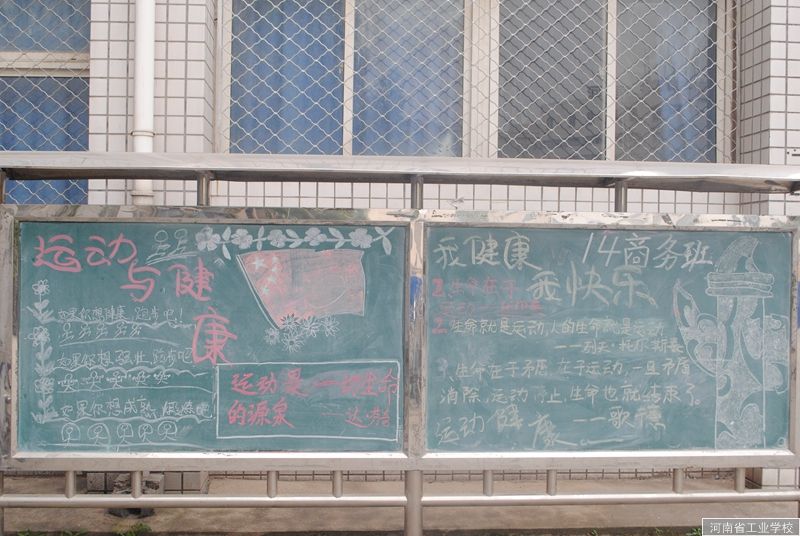 运动
与健
康
如果你想健康,跑步吧!
如果你想强壮,跑步吧
如果你想成熟,
运动是一切生命
的源泉
——达·芬奇
我健康
我快乐
14商务班
生命在于
2.生命就是运动,人的生命就是运动
——列夫·托尔斯泰
3.生命在于矛盾,在于运动,一旦矛盾
消除,运动停止,生命也就结束了。
运动 健康——歌德
河南省工业学校